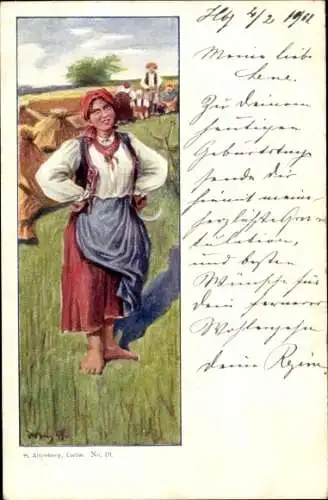 Hbg 4/2 1901
Meine liebe
Lene.
Zu deinem
heutigen
Geburtstage
sende dir
hiermit meine
herzlichste Gra-
tulation,
und besten
Wünsche für
dein ferneres
Wohlergehen
deine
H. Altenberg, Lwów. No. 19.